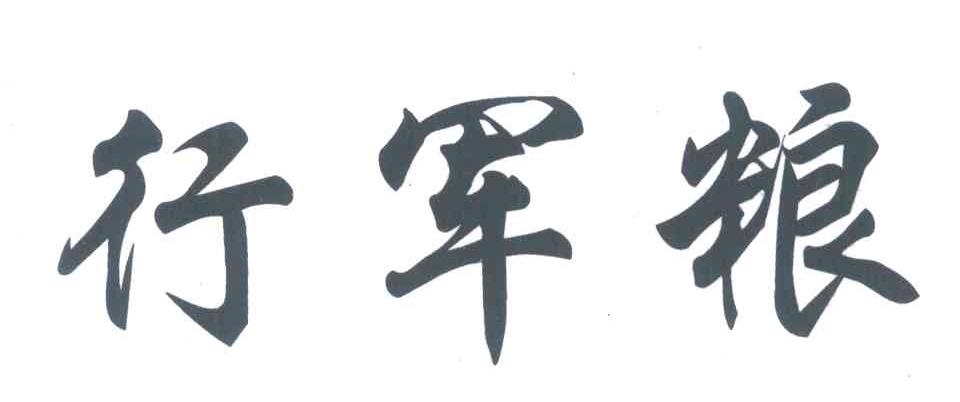 行军粮